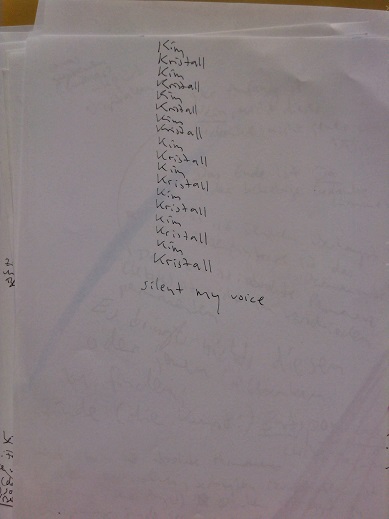 Kim
Kristall
Kim
Kristall
Kim
Kristall
Kim
Kristall
Kim
Kristall
Kim
Kristall
Kim
Kristall
Kim
Kristall
Kim
Kristall
silent my voice